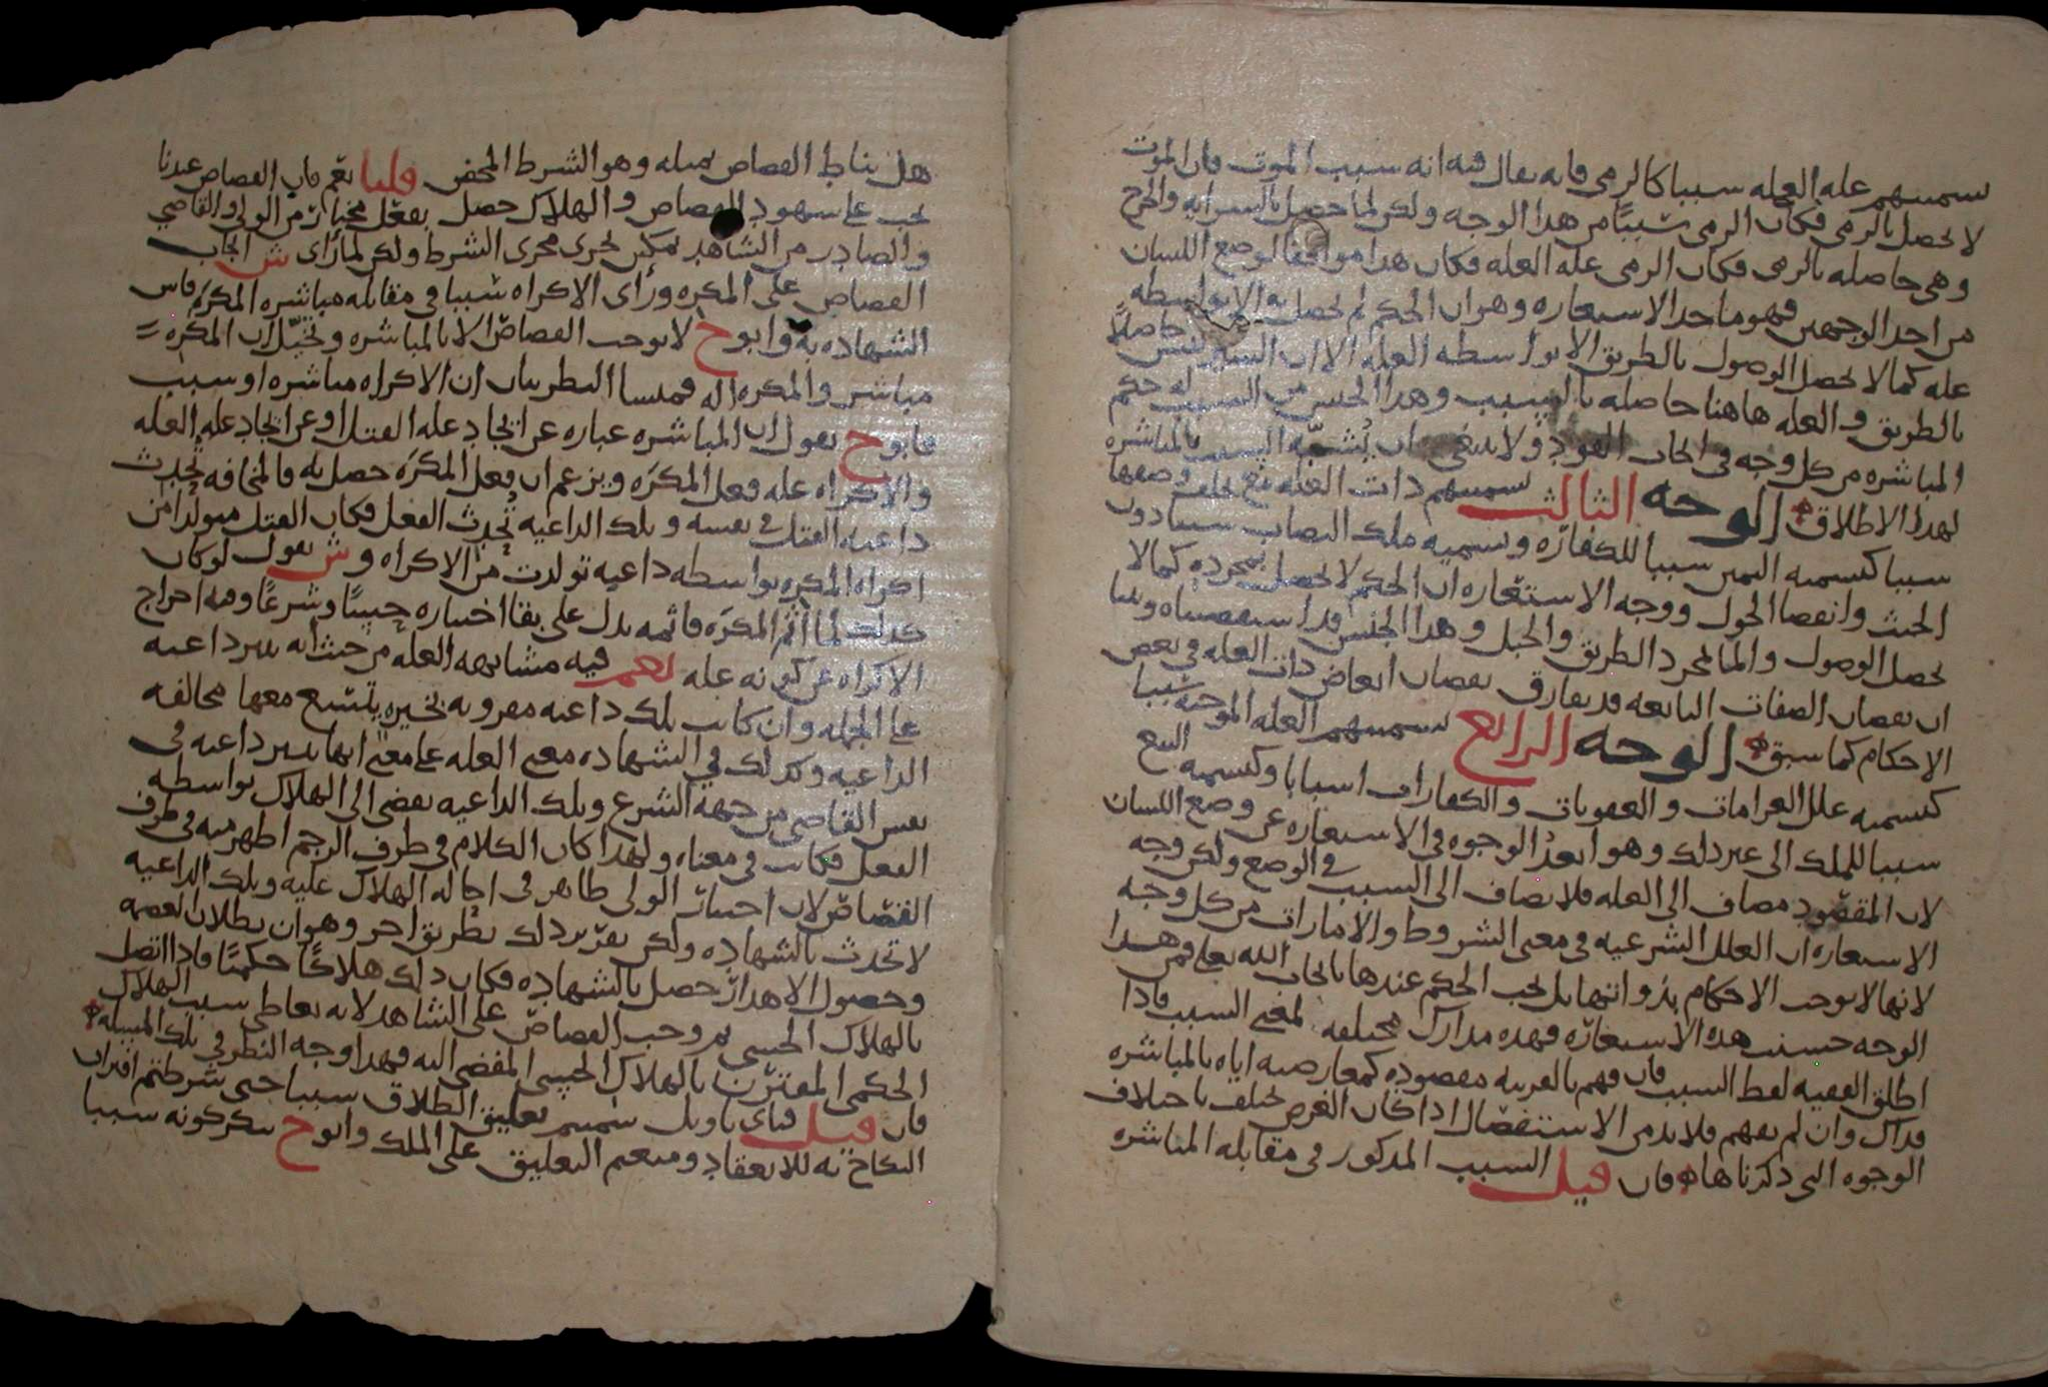 تسميتهم علة العلة سببا كالرمي فانه يقال فيه انه سبب الموت فان الموت
لا يحصل بالرمي فكان الرمي سببًا من هذا الوجه ولكن لما حصل بالسراية والجرح
وهي حاصلة بالرمي فكان الرمي علة العلة فكان هذا موافقا لوضع اللسان
من احد الوجهين فهو ماخذ الاستعارة وهو ان الحكم لم يحصل به الا بواسطة
علة كما لا يحصل الوصول بالطريق الا بواسطة العلة الا ان السير ليس حاصلاً
بالطريق والعلة هاهنا حاصلة بالسبب وهذا الجنس من السبب له حكم
المباشرة من كل وجه في ايجاب القود ولا ينبغي ان يُشبّه السبب بالمباشرة
لهذا الاطلاق الوجه الثالث تسميتهم ذات العلة مع تخلف وصفها
سببا كتسمية اليمين سببا للكفارة وتسمية ملك النصاب سببا دون
الحنث وانقضا الحول ووجه الاستعارة ان الحكم لا يحصل بمجرده كما لا
يحصل الوصول والما بمجرد الطريق والحبل وهذا الجنس قد استقصيناه وبينا
ان نقصان الصفات التابعة قد يفارق نقصان ابعاض ذات العلة في بعض
الاحكام كما سبق الوجه الرابع تسميتهم العلة الموجبة سببا
كتسمية علل الغرامات والعقوبات والكفارات اسبابا وكتسمية البيع
سببا للملك الى غير ذلك وهو ابعدُ الوجوه في الاستعارة عن وضع اللسان
لان المقصود مضاف الى العلة فلا يضاف الى السبب في الوضع ولكن وجه
الاستعارة ان العلل الشرعية في معنى الشروط والامارات من كل وجه
لانها لا توجب الاحكام بذواتها بل يجب الحكم عندها بايجاب الله تعلى فمن هذا
الوجه حسنت هذه الاستعارة فهذه مدارك مختلفة لمعنى السبب فاذا
اطلق الفقيه لفظ السبب فان فهم بالقرينة مقصوده كمعارضته اياه بالمباشرة
فذاك وان لم يفهم فلا بد من الاستفصال اذا كان الغرض يختلف باختلاف
الوجوه التي ذكرناها فان قيل السبب المذكور في مقابلة المباشرة
هل يناط القصاص بمثله وهو الشرط المحض قلنا نعم فان القصاص عندنا
يجب على شهود القصاص والهلاك حصل بفعل مختار من الولي والقاضي
والصادر من الشاهد تمكين يجري مجرى الشرط ولكن لما رأى ش ايجاب
القصاص على المكره ورأى الاكراه سببا في مقابلة مباشرة المكرَه قاس
الشهادة به وابوح لا يوجب القصاص الا بالمباشرة وتخيّل ان المكره
مباشر والمكره آلة فمنشا النظرين ان الاكراه مباشرة او سبب
فابوح يقول ان المباشرة عبارة عن ايجاد علة القتل او عن ايجاد علة العلة
والاكراه علة فعل المكرَه ويزعم ان فعل المكرَه حصل به فالمخافة تُحدث
داعية القتل في نفسه وتلك الداعية تُحدث الفعل فكان القتل متولدا من
اكراه المكره بواسطة داعية تولدت من الاكراه وش يقول لو كان
كذلك لما اثم المكرَه فاثمه يدل على بقا اختياره حِسًّا وشرعًا وفيه اخراج
الاكراه عن كونه علة نعم فيه مشابهة العلة من حيث انه يثير داعية
على الجملة وان كانت تلك داعية مقرونة بخيرة يتسع معها مخالفة
الداعية وكذلك في الشهادة معنى العلة على معنى انها تثير داعية في
نفس القاضي من جهة الشرع وتلك الداعية تفضي الى الهلاك بواسطة
الفعل فكانت في معناه ولهذا كان الكلام في طرف الرجم اظهر منه في طرف
القصاص لان اختيار الولي ظاهر في احالة الهلاك عليه وتلك الداعية
لا تحدث بالشهادة ولكن تقرير ذلك بطريق اخر وهو ان بطلان العصمة
وحصول الاهدار حصل بالشهادة فكان ذلك هلاكًا حكميًا فاذا اتصل
بالهلاك الحسي ثم وجب القصاص على الشاهد لانه تعاطى سبب الهلاك
الحكمي المقترن بالهلاك الحسي المفضي اليه فهذا وجه النظر في تلك المسيلة
فان قيل فباي تاويل سميتم تعليق الطلاق سببا حتى شرطتم اقتران
النكاح به للانعقاد ومنعتم التعليق على الملك وابوح ينكر كونه سببا